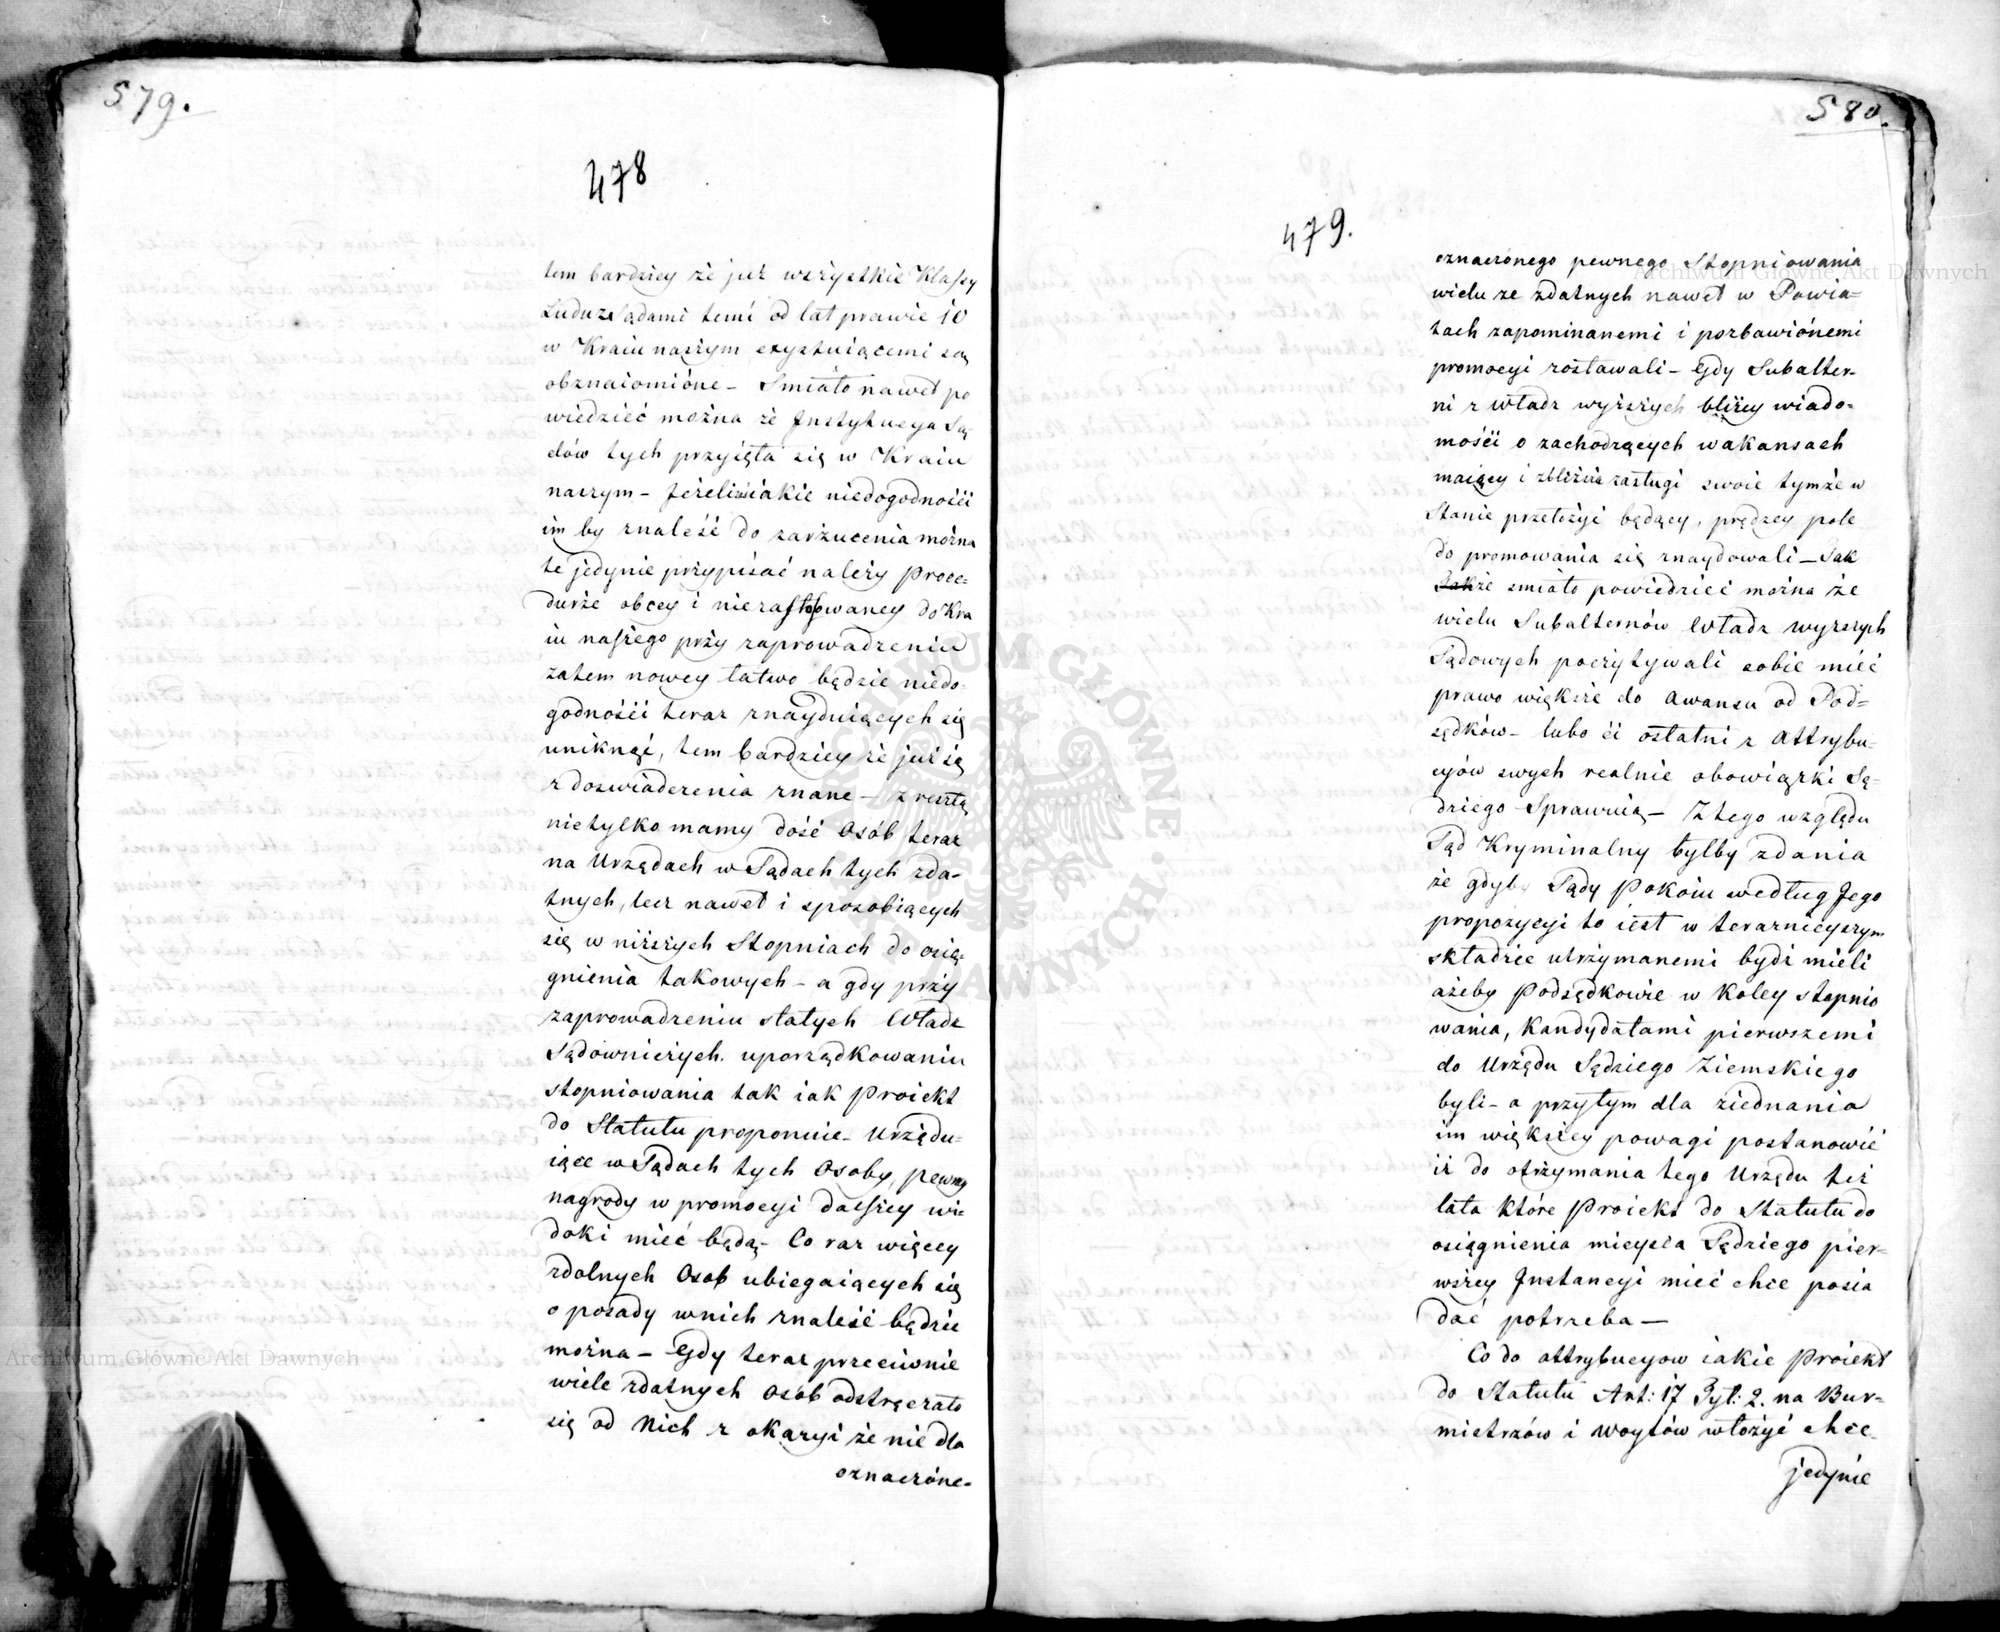 579.
478
tem bardziey że już wszystkie Klassy
Ludu z Sądami temi od lat prawie 10
w Kraiu naszym exystuiącemi są
obznaiomióne – Smiało nawet po
wiedzieć można że Instytucya Są
dów tych przyięła się w Kraiu
naszym – Jeżeli iakie niedogodnośći
im by znaleść do zarzucenia można
te jedynie przypisać należy Proce-
durze obcey i niezastosowaney do Kra
iu naszego przy zaprowadzeniu
zatem nowey łatwo będzie niedo-
godnośći teraz znayduiących się
uniknąć, tem bardziey że już są
z doswiadczenia znane – z resztą
nietylko mamy dość Osób teraz
na Urzędach w Sądach tych zda-
tnych, lecz nawet i sposobiących
się w niższych Stopniach do osią-
gnienia takowych – a gdy przy
zaprowadzeniu stałych Władz
Sądowniczych. uporządkowaniu
stopniowania tak iak Proiekt
do Statutu proponuie – Urzędu-
iące w Sądach tych Osoby, pewną
nagrody w promocyi dalszey wi-
doki mieć będą – Co raz więcey
zdolnych Osob ubiegaiących się
o posady w nich znaleść będzie
można – Gdy teraz przeciwnie
wiele zdatnych Osób odstręczało
się od Nich z okazyi że nie dla
oznaczóne-
580.
479.
oznaczónego pewnego Stopniowania
wielu ze zdatnych nawet w Powia=
tach zapominanemi i pozbawiónemi
promocyi zostawali – Gdy Subalter-
ni z Władz wyższych bliżey wiado-
mośći o zachodzących wakansach
maiący i zbliżnia zasługi swoie tymże w
Stanie przełożyć będący, prędzey pole
do promowania się znaydowali – Jak
Jakże smiało powiedzieć można że
wielu Subalternów Władz wyższych
Sądowych poczytywali sobie mieć
prawo większe do Awansu od Pod=
sędków – lubo ći ostatni z Attrybu-
cyów swych realnie obowiązki Sę-
dziego Sprawuią – Z tego względu
Sąd Kryminalny byłby zdania
że gdyby Sądy Pokoiu według Jego
propozycyi to iest w terazniéyszym
składzie utrzymanemi bydź mieli
ażeby Podsędkowie w Koley stopnio
wania, Kandydatami pierwszemi
do Urzędu Sędziego Ziemskiego
byli – a przytym dla ziednania
im większey powagi postanowić
iż do otrzymania tego Urzędu też
lata które Proiekt do Statutu do
osiągnienia mieysca Sędziego pier-
wszey Instancyi mieć chce posia
dać potrzeba –
Co do attrybucyow iakie Proiekt
do Statutu Art: 17 Tyt: 2. na Bur-
mistrzów i Woytów włożyć chce
jedynie
Archiwum Główne Akt Dawnych
Archiwum Główne Akt Dawnych
ARCHIWUM GŁÓWNE AKT DAWNYCH